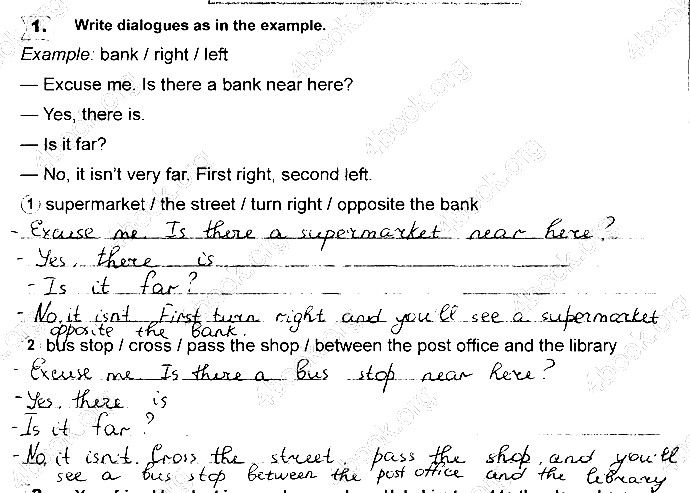 1. Write dialogues as in the example.
Example: bank / right / left
— Excuse me. Is there a bank near here?
— Yes, there is.
— Is it far?
— No, it isn't very far. First right, second left.
1 supermarket / the street / turn right / opposite the bank
- Excuse me. Is there a supermarket near here?
- Yes, there is
- Is it far?
- No, it isnt. First turn right and you'll see a supermarket
opposite the bank.
2 bus stop / cross / pass the shop / between the post office and the library
- Excuse me Is there a bus stop near here?
- Yes, there is
- Is it far?
- No, it isn't. Cross the street, pass the shop and you'll
see a bus stop between the post office and the library
4book.org